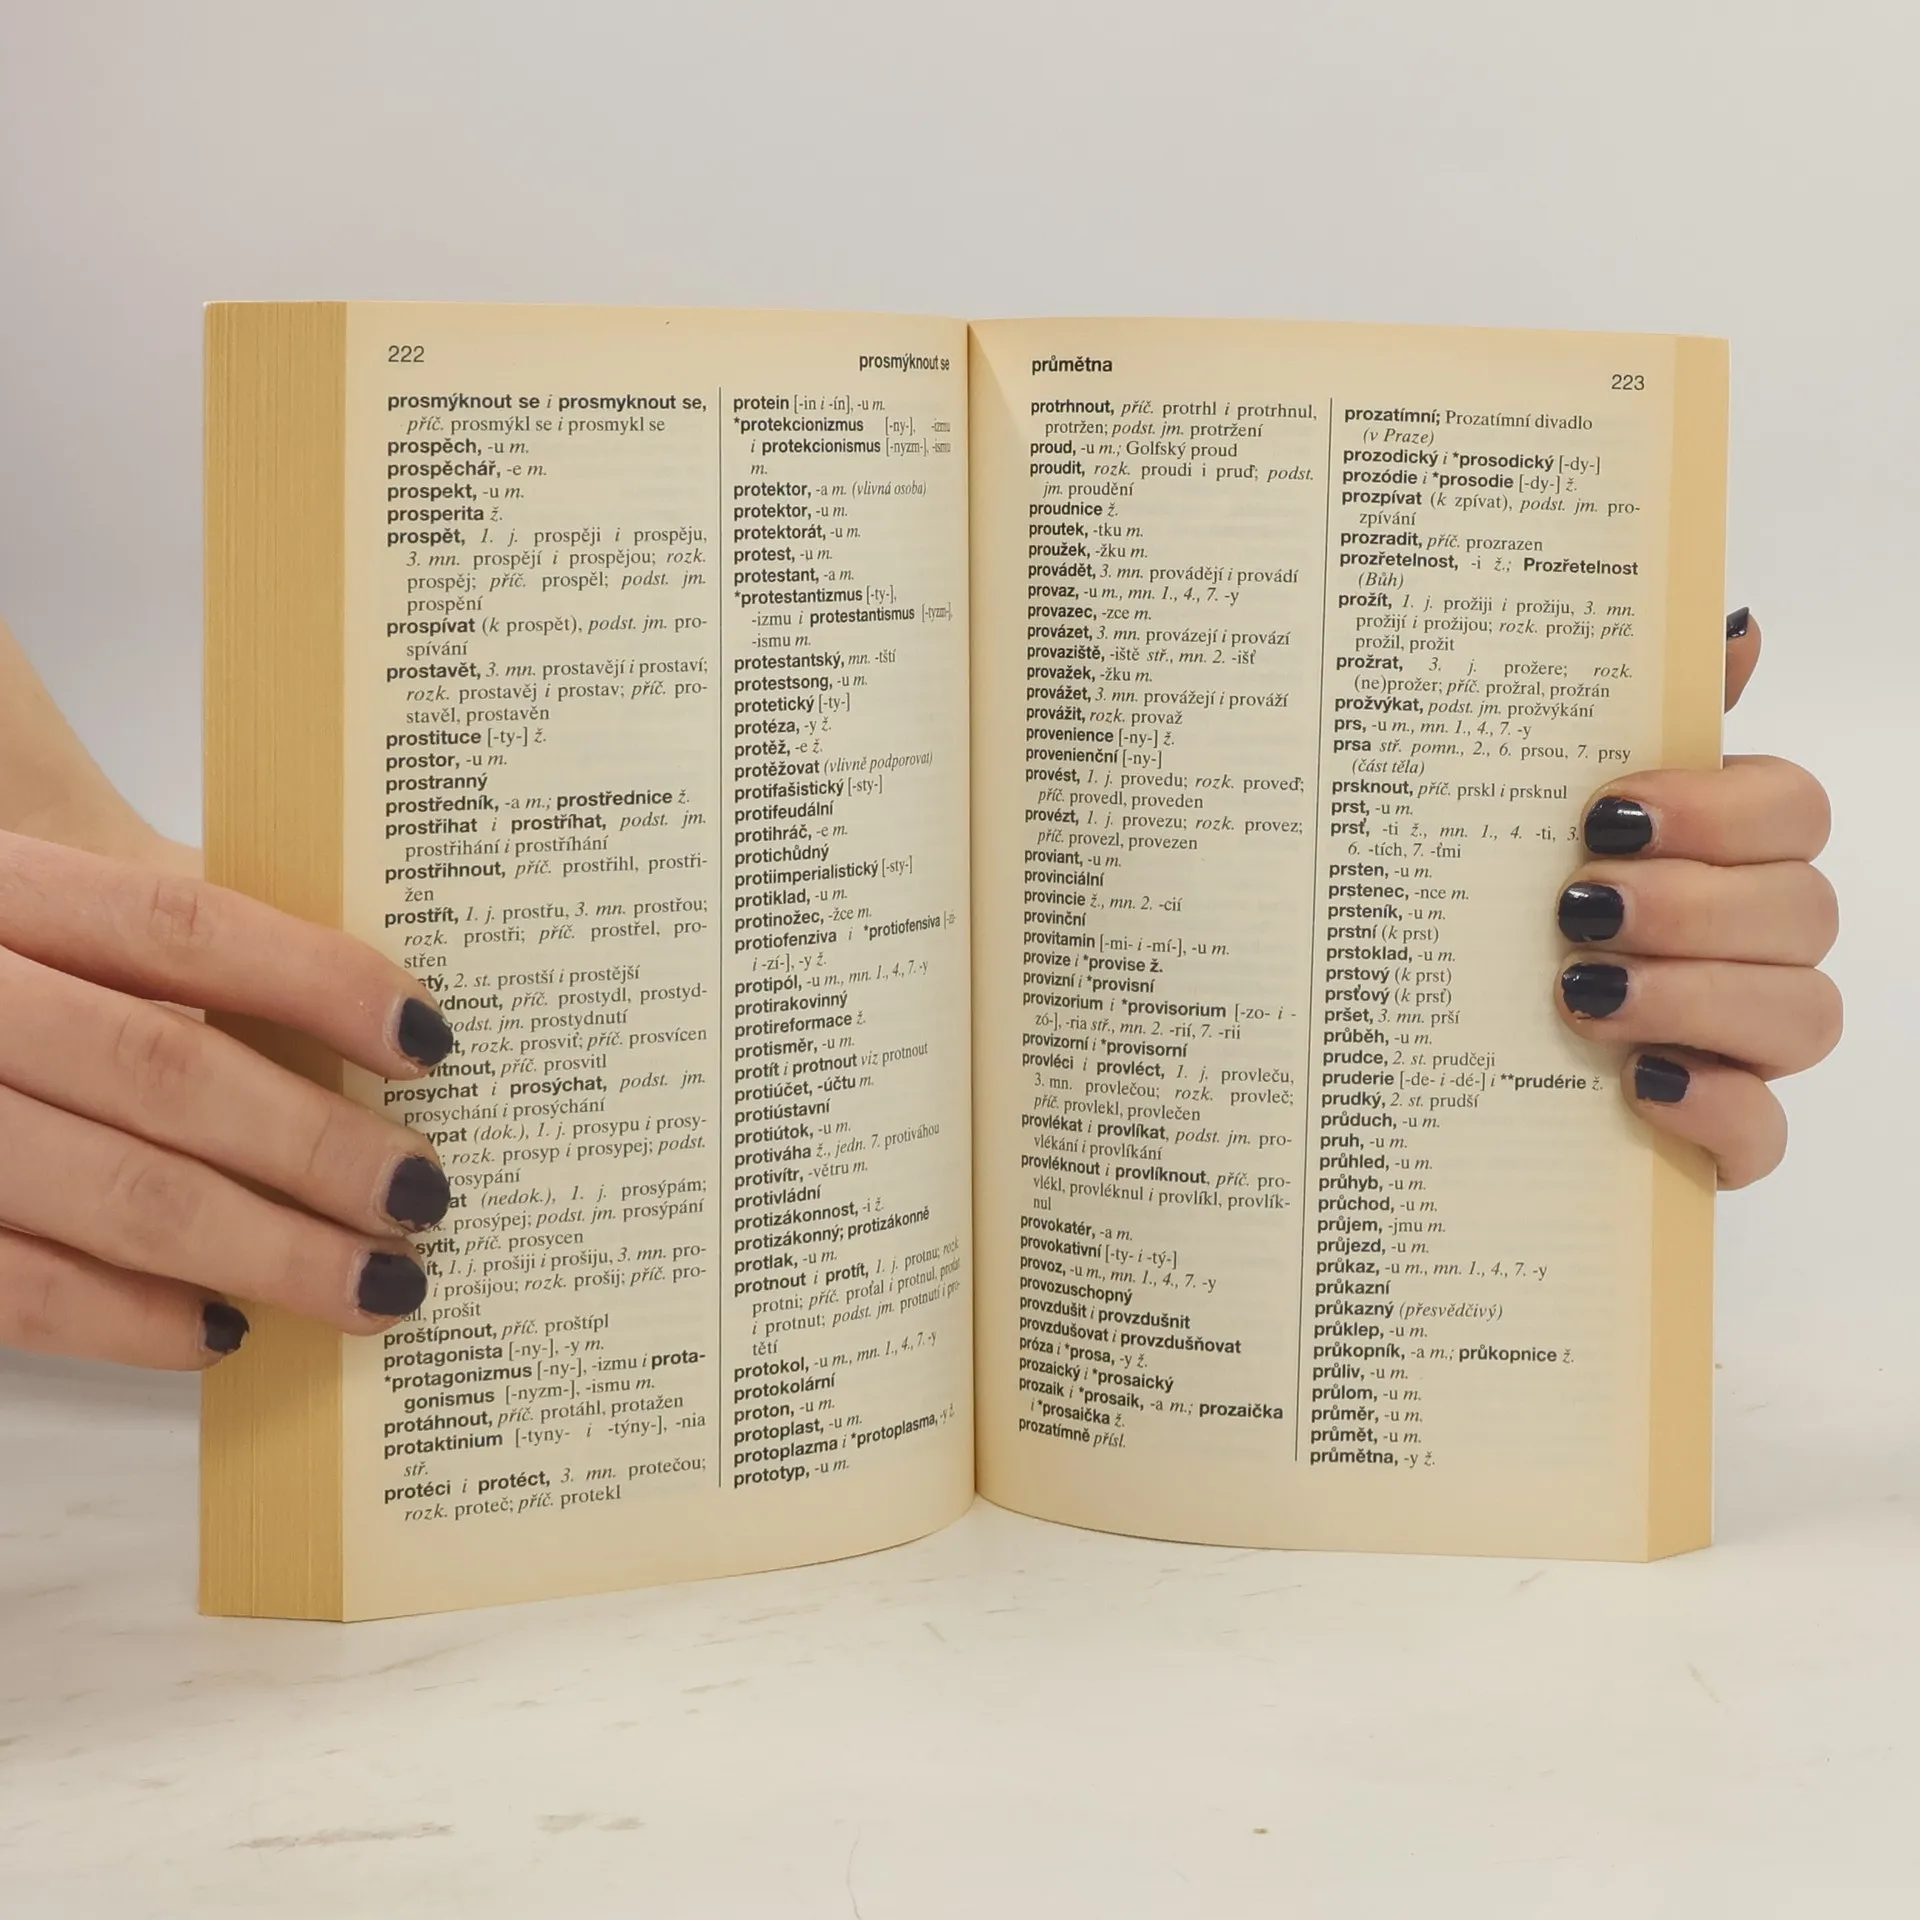 222
prosmýknout se
prosmýknout se i prosmyknout se,
příč. prosmýkl se i prosmykl se
prospěch, -u m.
prospěchář, -e m.
prospekt, -u m.
prosperita ž.
prospět, 1. j. prospěji i prospěju,
3. mn. prospějí i prospějou; rozk.
prospěj; příč. prospěl; podst. jm.
prospění
prospívat (k prospět), podst. jm. pro-
spívání
prostavět, 3. mn. prostavějí i prostaví;
rozk. prostavěj i prostav; příč. pro-
stavěl, prostavěn
prostituce [-ty-] ž.
prostor, -u m.
prostranný
prostředník, -a m.; prostřednice ž.
prostřihat i prostříhat, podst. jm.
prostřihání i prostříhání
prostřihnout, příč. prostřihl, prostři-
žen
prostřít, 1. j. prostřu, 3. mn. prostřou;
rozk. prostři; příč. prostřel, pro-
střen
stý, 2. st. prostší i prostější
ydnout, příč. prostydl, prostyd-
podst. jm. prostydnutí
it, rozk. prosviť; příč. prosvícen
vitnout, příč. prosvitl
prosychat i prosýchat, podst. jm.
prosychání i prosýchání
ypat (dok.), 1. j. prosypu i prosy-
; rozk. prosyp i prosypej; podst.
rosypání
at (nedok.), 1. j. prosýpám;
prosýpej; podst. jm. prosýpání
sytit, příč. prosycen
ít, 1. j. prošiji i prošiju, 3. mn. pro-
i prošijou; rozk. prošij; příč. pro-
šil, prošit
proštípnout, příč. proštípl
protagonista [-ny-], -y m.
*protagonizmus [-ny-], -izmu i prota-
gonismus [-nyzm-], -ismu m.
protáhnout, příč. protáhl, protažen
protaktinium [-tyny- i -týny-], -nia
stř.
protéci i protéct, 3. mn. protečou;
rozk. proteč; příč. protekl
protein [-in i -ín], -u m.
*protekcionizmus [-ny-], -izmu
i protekcionismus [-nyzm-], -ismu
m.
protektor, -a m. (vlivná osoba)
protektor, -u m.
protektorát, -u m.
protest, -u m.
protestant, -a m.
*protestantizmus [-ty-],
-izmu i protestantismus [-tyzm-],
-ismu m.
protestantský, mn. -tští
protestsong, -u m.
protetický [-ty-]
protéza, -y ž.
protěž, -e ž.
protěžovat (vlivně podporovat)
protifašistický [-sty-]
protifeudální
protihráč, -e m.
protichůdný
protiimperialistický [-sty-]
protiklad, -u m.
protinožec, -žce m.
protiofenziva i *protiofensiva [-zi-
i -zí-], -y ž.
protipól, -u m., mn. 1., 4., 7. -y
protirakovinný
protireformace ž.
protisměr, -u m.
protít i protnout viz protnout
protiúčet, -účtu m.
protiústavní
protiútok, -u m.
protiváha ž., jedn. 7. protiváhou
protivítr, -větru m.
protivládní
protizákonnost, -i ž.
protizákonný; protizákonně
protlak, -u m.
protnout i protít, 1. j. protnu; rozk.
protni; příč. proťal i protnul, proťat
i protnut; podst. jm. protnutí i pro-
tětí
protokol, -u m., mn. 1., 4., 7. -y
protokolární
proton, -u m.
protoplast, -u m.
protoplazma i *protoplasma, -y ž.
prototyp, -u m.
průmětna
223
protrhnout, příč. protrhl i protrhnul,
protržen; podst. jm. protržení
proud, -u m.; Golfský proud
proudit, rozk. proudi i pruď; podst.
jm. proudění
proudnice ž.
proutek, -tku m.
proužek, -žku m.
provádět, 3. mn. provádějí i provádí
provaz, -u m., mn. 1., 4., 7. -y
provazec, -zce m.
provázet, 3. mn. provázejí i provází
provaziště, -iště stř., mn. 2. -išť
provažek, -žku m.
provážet, 3. mn. provážejí i prováží
provážit, rozk. provaž
provenience [-ny-] ž.
provenienční [-ny-]
provést, 1. j. provedu; rozk. proveď;
příč. provedl, proveden
provézt, 1. j. provezu; rozk. provez;
příč. provezl, provezen
proviant, -u m.
provinciální
provincie ž., mn. 2. -cií
provinční
provitamin [-mi- i -mí-], -u m.
provize i *provise ž.
provizní i *provisní
provizorium i *provisorium [-zo- i -
zó-], -ria stř., mn. 2. -rií, 7. -rii
provizorní i *provisorní
provléci i provléct, 1. j. provleču,
3. mn. provlečou; rozk. provleč;
příč. provlekl, provlečen
provlékat i provlíkat, podst. jm. pro-
vlékání i provlíkání
provléknout i provlíknout, příč. pro-
vlékl, provléknul i provlíkl, provlík-
nul
provokatér, -a m.
provokativní [-ty- i -tý-]
provoz, -u m., mn. 1., 4., 7. -y
provozuschopný
provzdušit i provzdušnit
provzdušovat i provzdušňovat
próza i *prosa, -y ž.
prozaický i *prosaický
prozaik i *prosaik, -a m.; prozaička
i *prosaička ž.
prozatímně přísl.
prozatímní; Prozatímní divadlo
(v Praze)
prozodický i *prosodický [-dy-]
prozódie i *prosodie [-dy-] ž.
prozpívat (k zpívat), podst. jm. pro-
zpívání
prozradit, příč. prozrazen
prozřetelnost, -i ž.; Prozřetelnost
(Bůh)
prožít, 1. j. prožiji i prožiju, 3. mn.
prožijí i prožijou; rozk. prožij; příč.
prožil, prožit
prožrat, 3. j. prožere; rozk.
(ne)prožer; příč. prožral, prožrán
prožvýkat, podst. jm. prožvýkání
prs, -u m., mn. 1., 4., 7. -y
prsa stř. pomn., 2., 6. prsou, 7. prsy
(část těla)
prsknout, příč. prskl i prsknul
prst, -u m.
prsť, -ti ž., mn. 1., 4. -ti, 3.
6. -tích, 7. -ťmi
prsten, -u m.
prstenec, -nce m.
prsteník, -u m.
prstní (k prst)
prstoklad, -u m.
prstový (k prst)
prsťový (k prsť)
pršet, 3. mn. prší
průběh, -u m.
prudce, 2. st. prudčeji
pruderie [-de- i -dé-] i **prudérie ž.
prudký, 2. st. prudší
průduch, -u m.
pruh, -u m.
průhled, -u m.
průhyb, -u m.
průchod, -u m.
průjem, -jmu m.
průjezd, -u m.
průkaz, -u m., mn. 1., 4., 7. -y
průkazní
průkazný (přesvědčivý)
průklep, -u m.
průkopník, -a m.; průkopnice ž.
průliv, -u m.
průlom, -u m.
průměr, -u m.
průmět, -u m.
průmětna, -y ž.